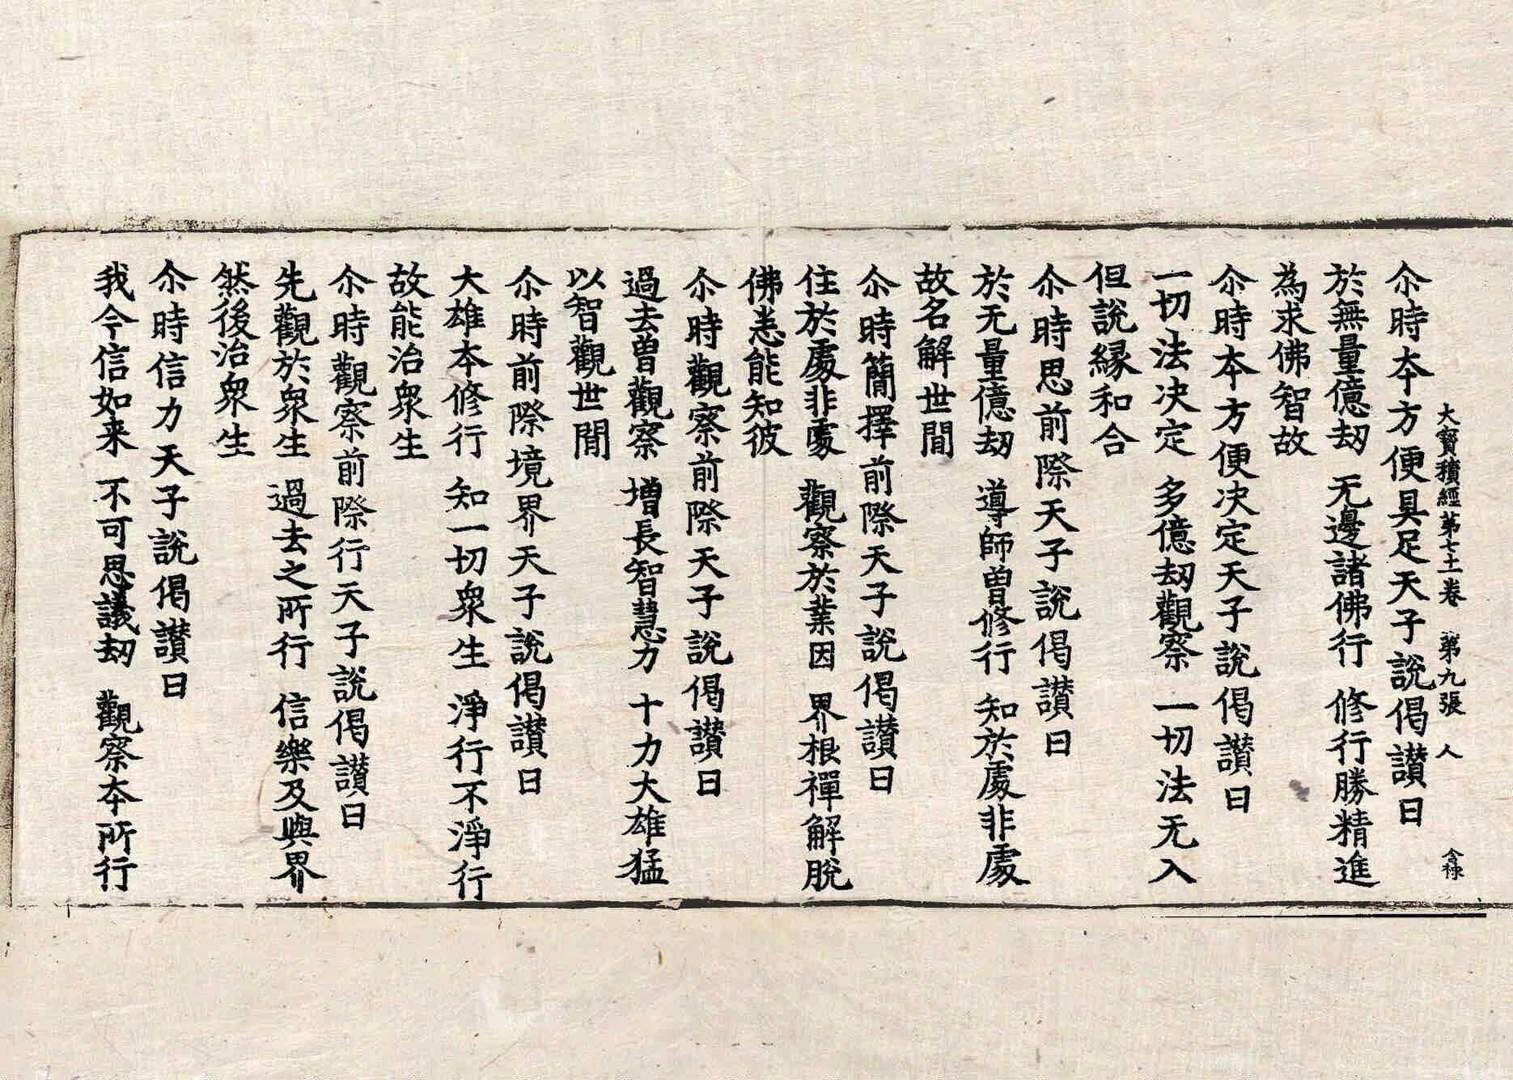 大寶積經第七十一卷　第九張　人　令祿
尒時本方便具足天子說偈讃曰
於無量億劫　无邊諸佛行　修行勝精進
為求佛智故
尒時本方便决定天子說偈讃曰
一切法决定　多億劫觀察　一切法无入
但說縁和合
尒時思前際天子說偈讃曰
於无量億劫　導師曽修行　知於處非處
故名解世間
尒時簡擇前際天子說偈讃曰
住於處非處　觀察於業因　界根禪解脫
佛悉能知彼
尒時觀察前際天子說偈讃曰
過去曽觀察　增長智慧力　十力大雄猛
以智觀世間
尒時前際境界天子說偈讃曰
大雄本修行　知一切衆生　淨行不淨行
故能治衆生
尒時觀察前際行天子說偈讃曰
先觀於衆生　過去之所行　信樂及與界
然後治衆生
尒時信力天子說偈讃曰
我今信如来　不可思議劫　觀察本所行